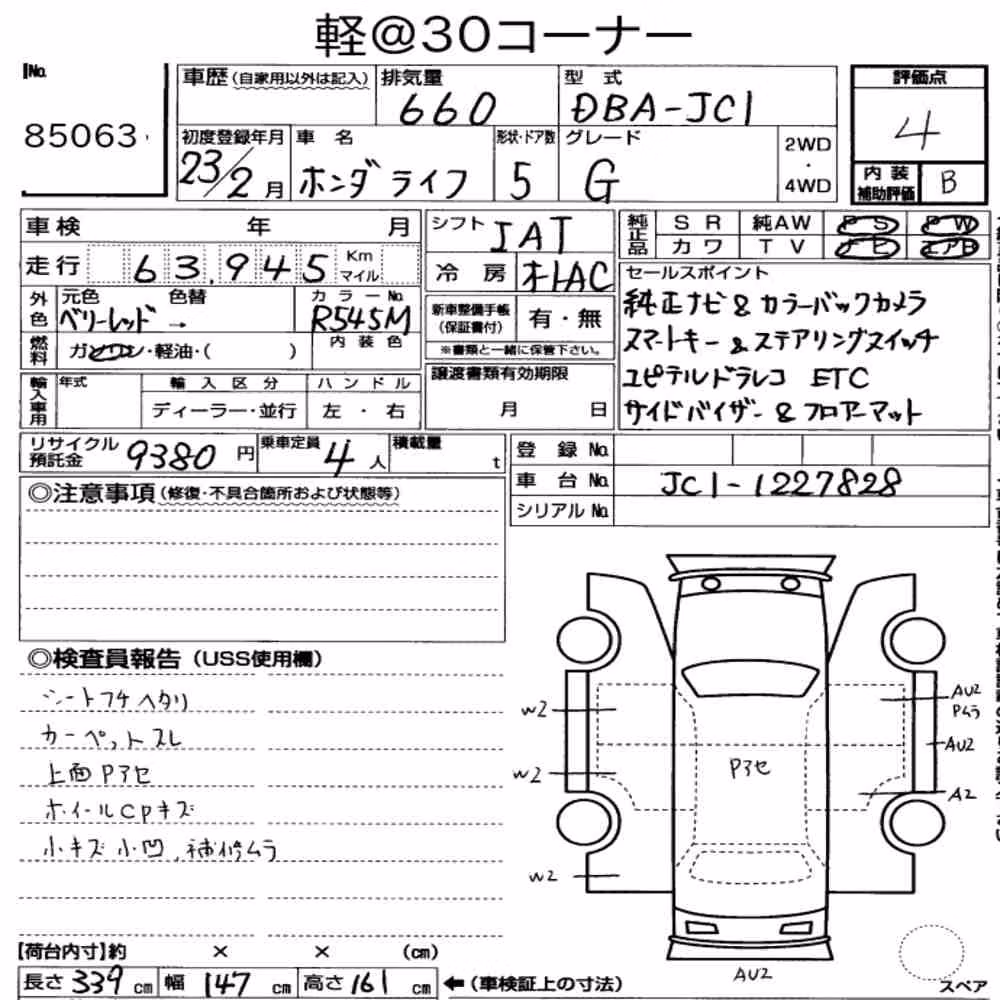 軽@30コーナー
No.
85063
車歴(自家用以外は記入)
排気量
660
型 式
DBA-JC1
評価点
4
内装
補助評価
B
初度登録年月
23/2月
車 名
ホンダ ライフ
形状・ドア数
5
グレード
G
2WD
・
4WD
車検 年 月
走行 63,945 Km
マイル
外色 元色 色替 カラーNo.
ベリーレッド → R545M
燃料 ガソリン・軽油・( )
内装色
輸入車用 年式 輸入区分 ハンドル
ディーラー・並行 左・右
シフト IAT
冷房 オートAC
新車整備手帳
(保証書付)
有・無
※書類と一緒に保管下さい。
譲渡書類有効期限
月 日
純正品 SR 純AW PS PW
カワ TV ナビ エアB
セールスポイント
純正ナビ & カラーバックカメラ
スマートキー & ステアリングスイッチ
ユピテルドラレコ ETC
サイドバイザー & フロアーマット
リサイクル
預託金
9380円
乗車定員
4人
積載量
t
登録No.
車台No. JC1-1227828
シリアルNo.
◎注意事項(修復・不具合箇所および状態等)
◎検査員報告(USS使用欄)
シートフチヘタリ
カーペットスレ
上面Pアセ
ホイールCPキズ
小キズ小凹、補修ムラ
W2
W2
W2
Pアセ
AU2
Pムラ
AU2
A2
AU2
スペア
【荷台内寸】約 × × (cm)
長さ 339 cm 幅 147 cm 高さ 161 cm ←(車検証上の寸法)